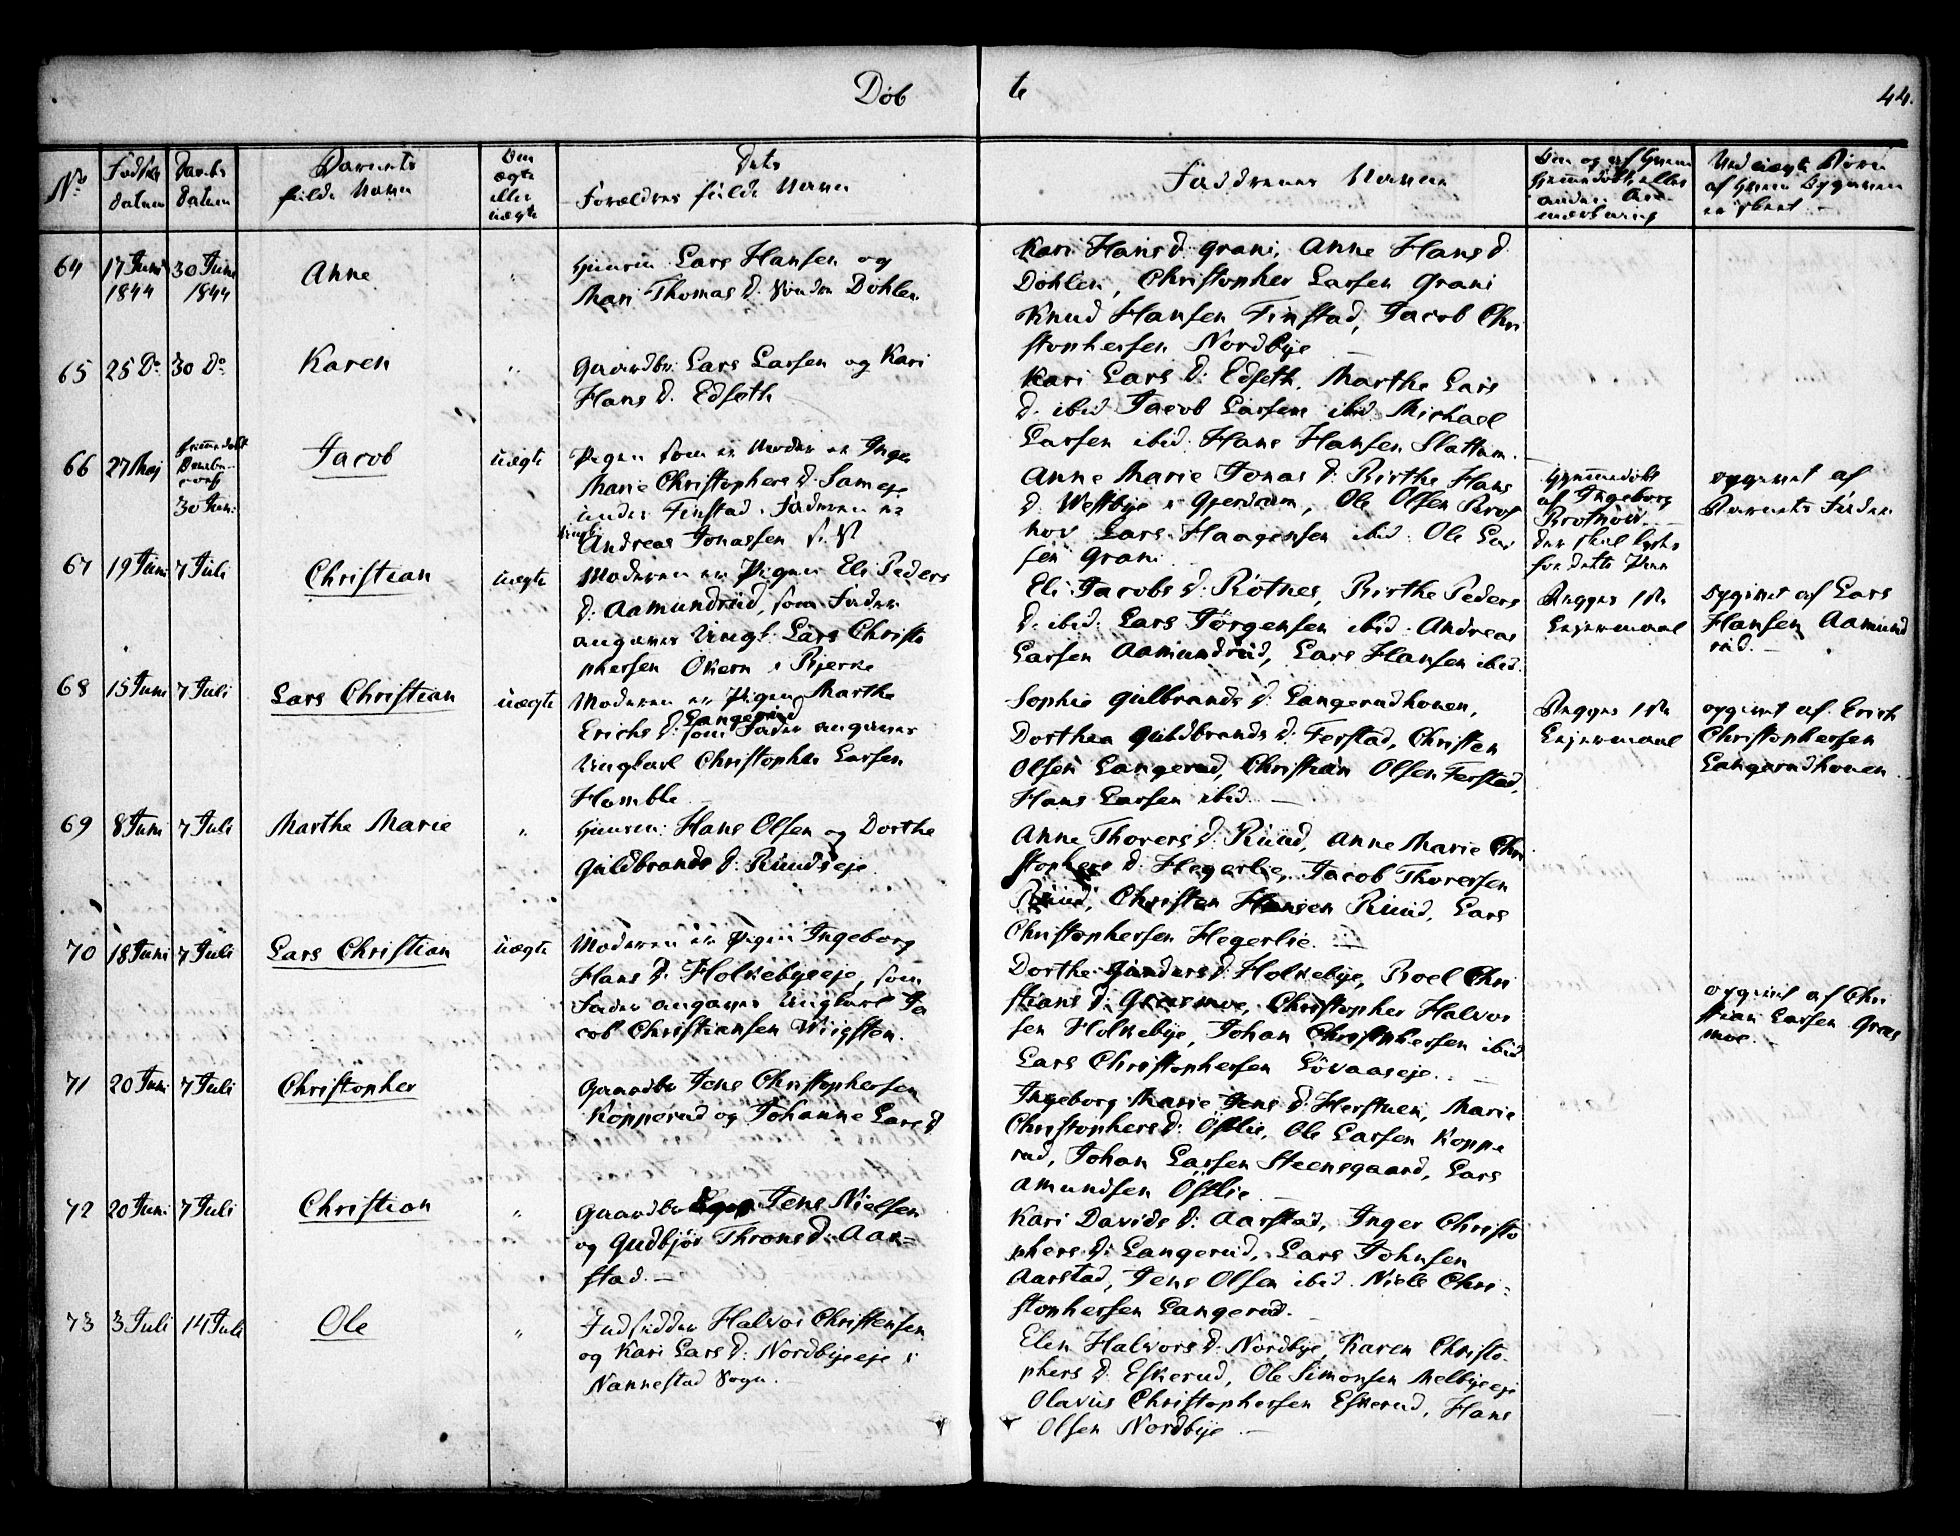 Døb te 44.
No
Fødsels Datum
Daabs Datum
Barnets fulde Navn
Om ægte eller uægte
Dets Forældres fulde Navn
Faddernes Navne
64 17 Juni 1844 30 Juni 1844 Anne "
Huusm: Lars Hansen og
Mari Thomas d. Søndre Døhlen
Kari Hans d. Grani, Anne Hans d.
Døhlen, Christopher Larsen Grani
Knud Hansen Finstad, Jacob Chri
stophersen Nordbye —
65 25 Do 30 Do Karen "
Gaardbr: Lars Larsen og Kari
Hans d. Edseth
Kari Lars d: Edseth, Marthe Lars
d. ibid Jacob Larsen ibid Michael
Larsen ibid. Hans Hansen Slattum.
66 27 Maj
30 Juni
Jacob uægte
Pigen som er Moder er Inge
Marie Christophers d. Sameje
under Finstad. Faderen er
Andreas Jonassen
Anne Marie Jonas d. Birthe Hans
d. Westbye i Gjerdrum, Ole Olsen Brot
hov Lars Haagensen ibid. Ole Lar
sen Grani
Hjemmedøbt
af Ingeborg
Brothov.
opgivet af
Barnets Fader
67 19 Juni 7 Juli Christian uægte
Moderen er Pigen Eli Peders
d. Aamundrud, som Fader
angives Ungk: Lars Christo
phersen Økern i Bjerke
Eli Jacobs d: Rotnes, Birthe Peders
d. ibid. Lars Jørgensen ibid. Andreas
Larsen Aamundrud, Lars Hansen ibid.
Begges 1ste
Leiermaal
opgivet af Lars
Hansen Aamund
rud. —
68 15 Juni 7 Juli Lars Christian uægte
Moderen er Pigen Marthe
Erichs d: Langerud som Fader angives
Ungkarl Christopher Larsen
Homble
Sophie Gulbrands d. Langerudhouen,
Dorthea Guldbrands d. Ferstad, Christen
Olsen Langerud, Christian Olsen Ferstad,
Hans Larsen ibid. —
Begges 1ste
Leiermaal
opgivet af Erich
Christophersen
Langerudhouen.
69 8 Juni 7 Juli Marthe Marie "
Huusm: Hans Olsen og Dorthe
Guldbrands d: Ruudseje
Anne Thorers d: Ruud, Anne Marie Chri
stophers d. Hegerlie, Jacob Thoresen
Ruud, Christen Hansen Ruud, Lars
Christophersen Hegerlie. —
70 18 Juni 7 Juli Lars Christian uægte
Moderen er Pigen Ingeborg
Hans d. Holkebyeeje, som
Fader angives Ungkarl Ja
cob Christiansen Wrigsten.
Dorthe Gunders d: Holkebye, Boel Chri
stians d. Grasmoe, Christopher Halvor
sen Holkebye, Johan Christophersen ibid
Lars Christophersen Løvaaseje. —
opgivet af Chri
stian Larsen Gras
moe.
71 20 Juni 7 Juli Christopher
Gaardbr Jens Christophersen
Kopperud og Johanne Lars d
Ingeborg Marie Jens d. Herstuen, Marie
Christophers d: Østlie, Ole Larsen Koppe
rud, Johan Larsen Steensgaard, Lars
Amundsen Østlie —
72 20 Juni 7 Juli Christian "
Gaardbr Jens Nielsen
og Gudbjør Throns d. Aar=
stad. —
Kari Davids d: Aarstad, Inger Christo
phers d: Langerud, Lars Johnsen
Aarstad, Jens Olsen ibid. Niels Chri=
stophersen Langerud.
73 3 Juli 14 Juli Ole "
Indsidder Halvor Christensen
og Kari Lars d: Nordbyeeje i
Nannestad Sogn.
Elen Halvors d. Nordbye, Karen Christo-
phers d. Eskerud, Ole Simonsen Melbyeeje
Olavus Christophersen Eskerud, Hans
Olsen Nordbye —